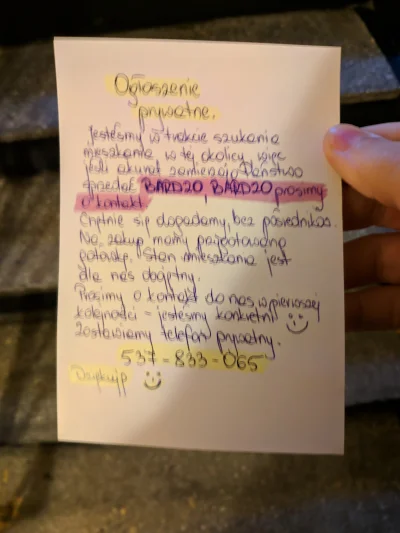 Ogłoszenie
prywatne.
jesteśmy w trakcie szukania
mieszkania w tej okolicy, więc
jeśli akurat zamierzają Państwo
sprzedać BARDZO, BARDZO prosimy
o kontakt.
Chętnie się dogadamy, bez pośredników.
Na zakup mamy przygotowaną
gotówkę. Stan mieszkania jest
dla nas obojętny.
Prosimy o kontakt do nas w pierwszej
kolejności - jesteśmy konkretni
Zostawiamy telefon prywatny.
537-833-065
Dziękuję